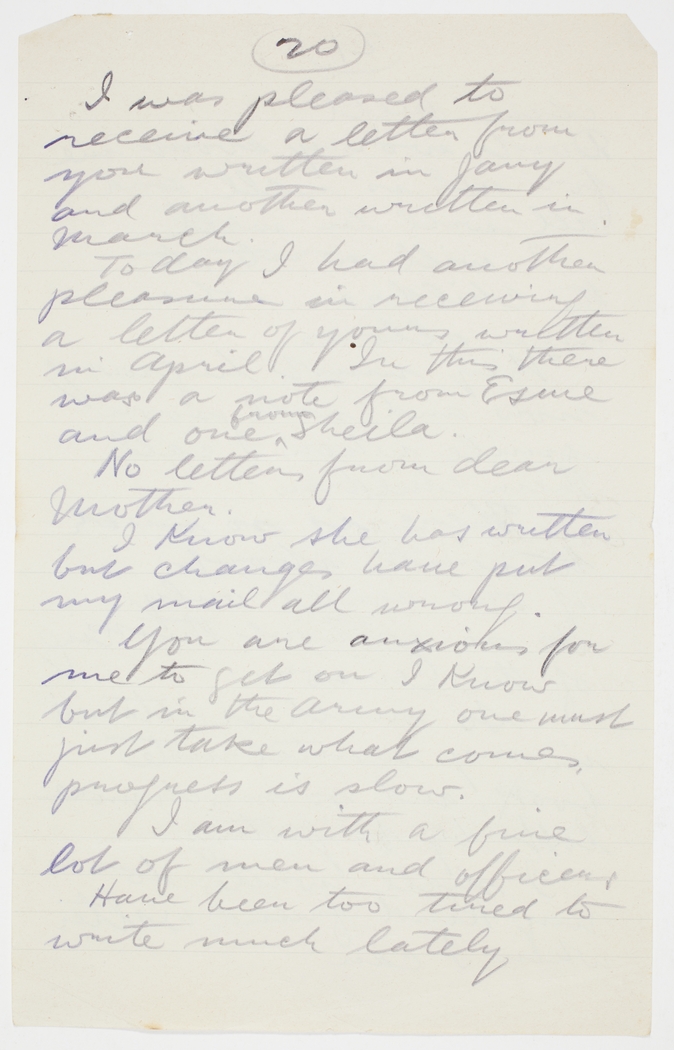 20
I was pleased to
receive a letter from
you written in Jany
and another written in
March.
Today I had another
pleasure in receiving
a letter of yours written
in April. In this there
was a note from Esme
and one from Sheila.
No letters from dear
Mother.
I know she has written
but changes have put
my mail all wrong.
You are anxious for
me to get on I know
but in the army one must
just take what comes,
progress is slow.
I am with a fine
lot of men and officers
Have been too tired to
write much lately